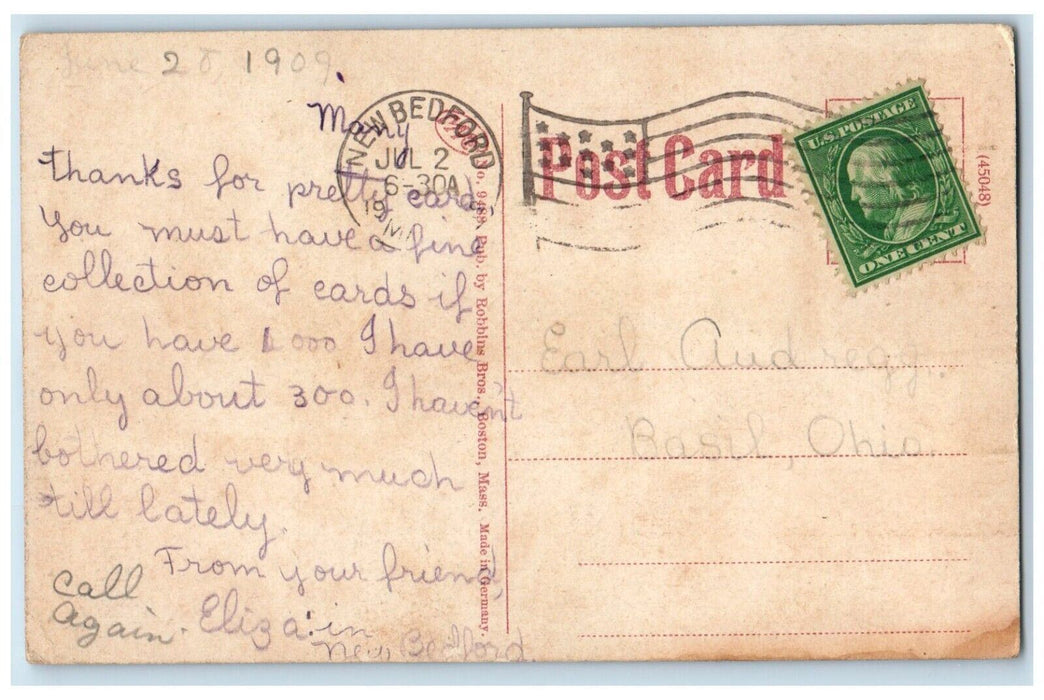 June 28, 1909.
Many
thanks for pretty card.
You must have a fine
collection of cards if
you have 1000 I have
only about 300. I haven't
bothered very much
till lately.
From your friend,
Eliza. in
New Bedford.
Call
Again.
NEW BEDFORD
JUL 2
6-30A
19
No. 9489 Pub. by Robbins Bros., Boston, Mass. Made in Germany.
Post Card
U.S. POSTAGE
ONE CENT
(45048)
Earl
Basil, Ohio.